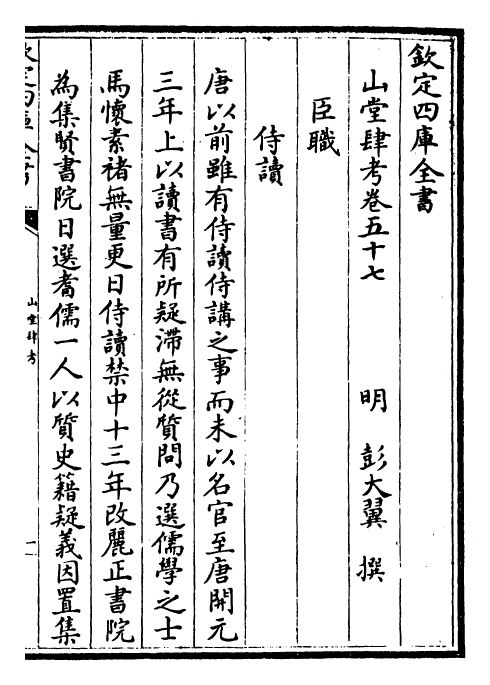 欽定四庫全書
山堂肆考卷五十七
明 彭大翼 撰
臣職
侍讀
唐以前雖有侍讀侍講之事而未以名官至唐開元
三年上以讀書有所疑滯無從質問乃選儒學之士
馬懷素褚無量更日侍讀禁中十三年改麗正書院
為集賢書院日選耆儒一人以質史籍疑義因置集
欽定四庫全書
山堂肆考
一